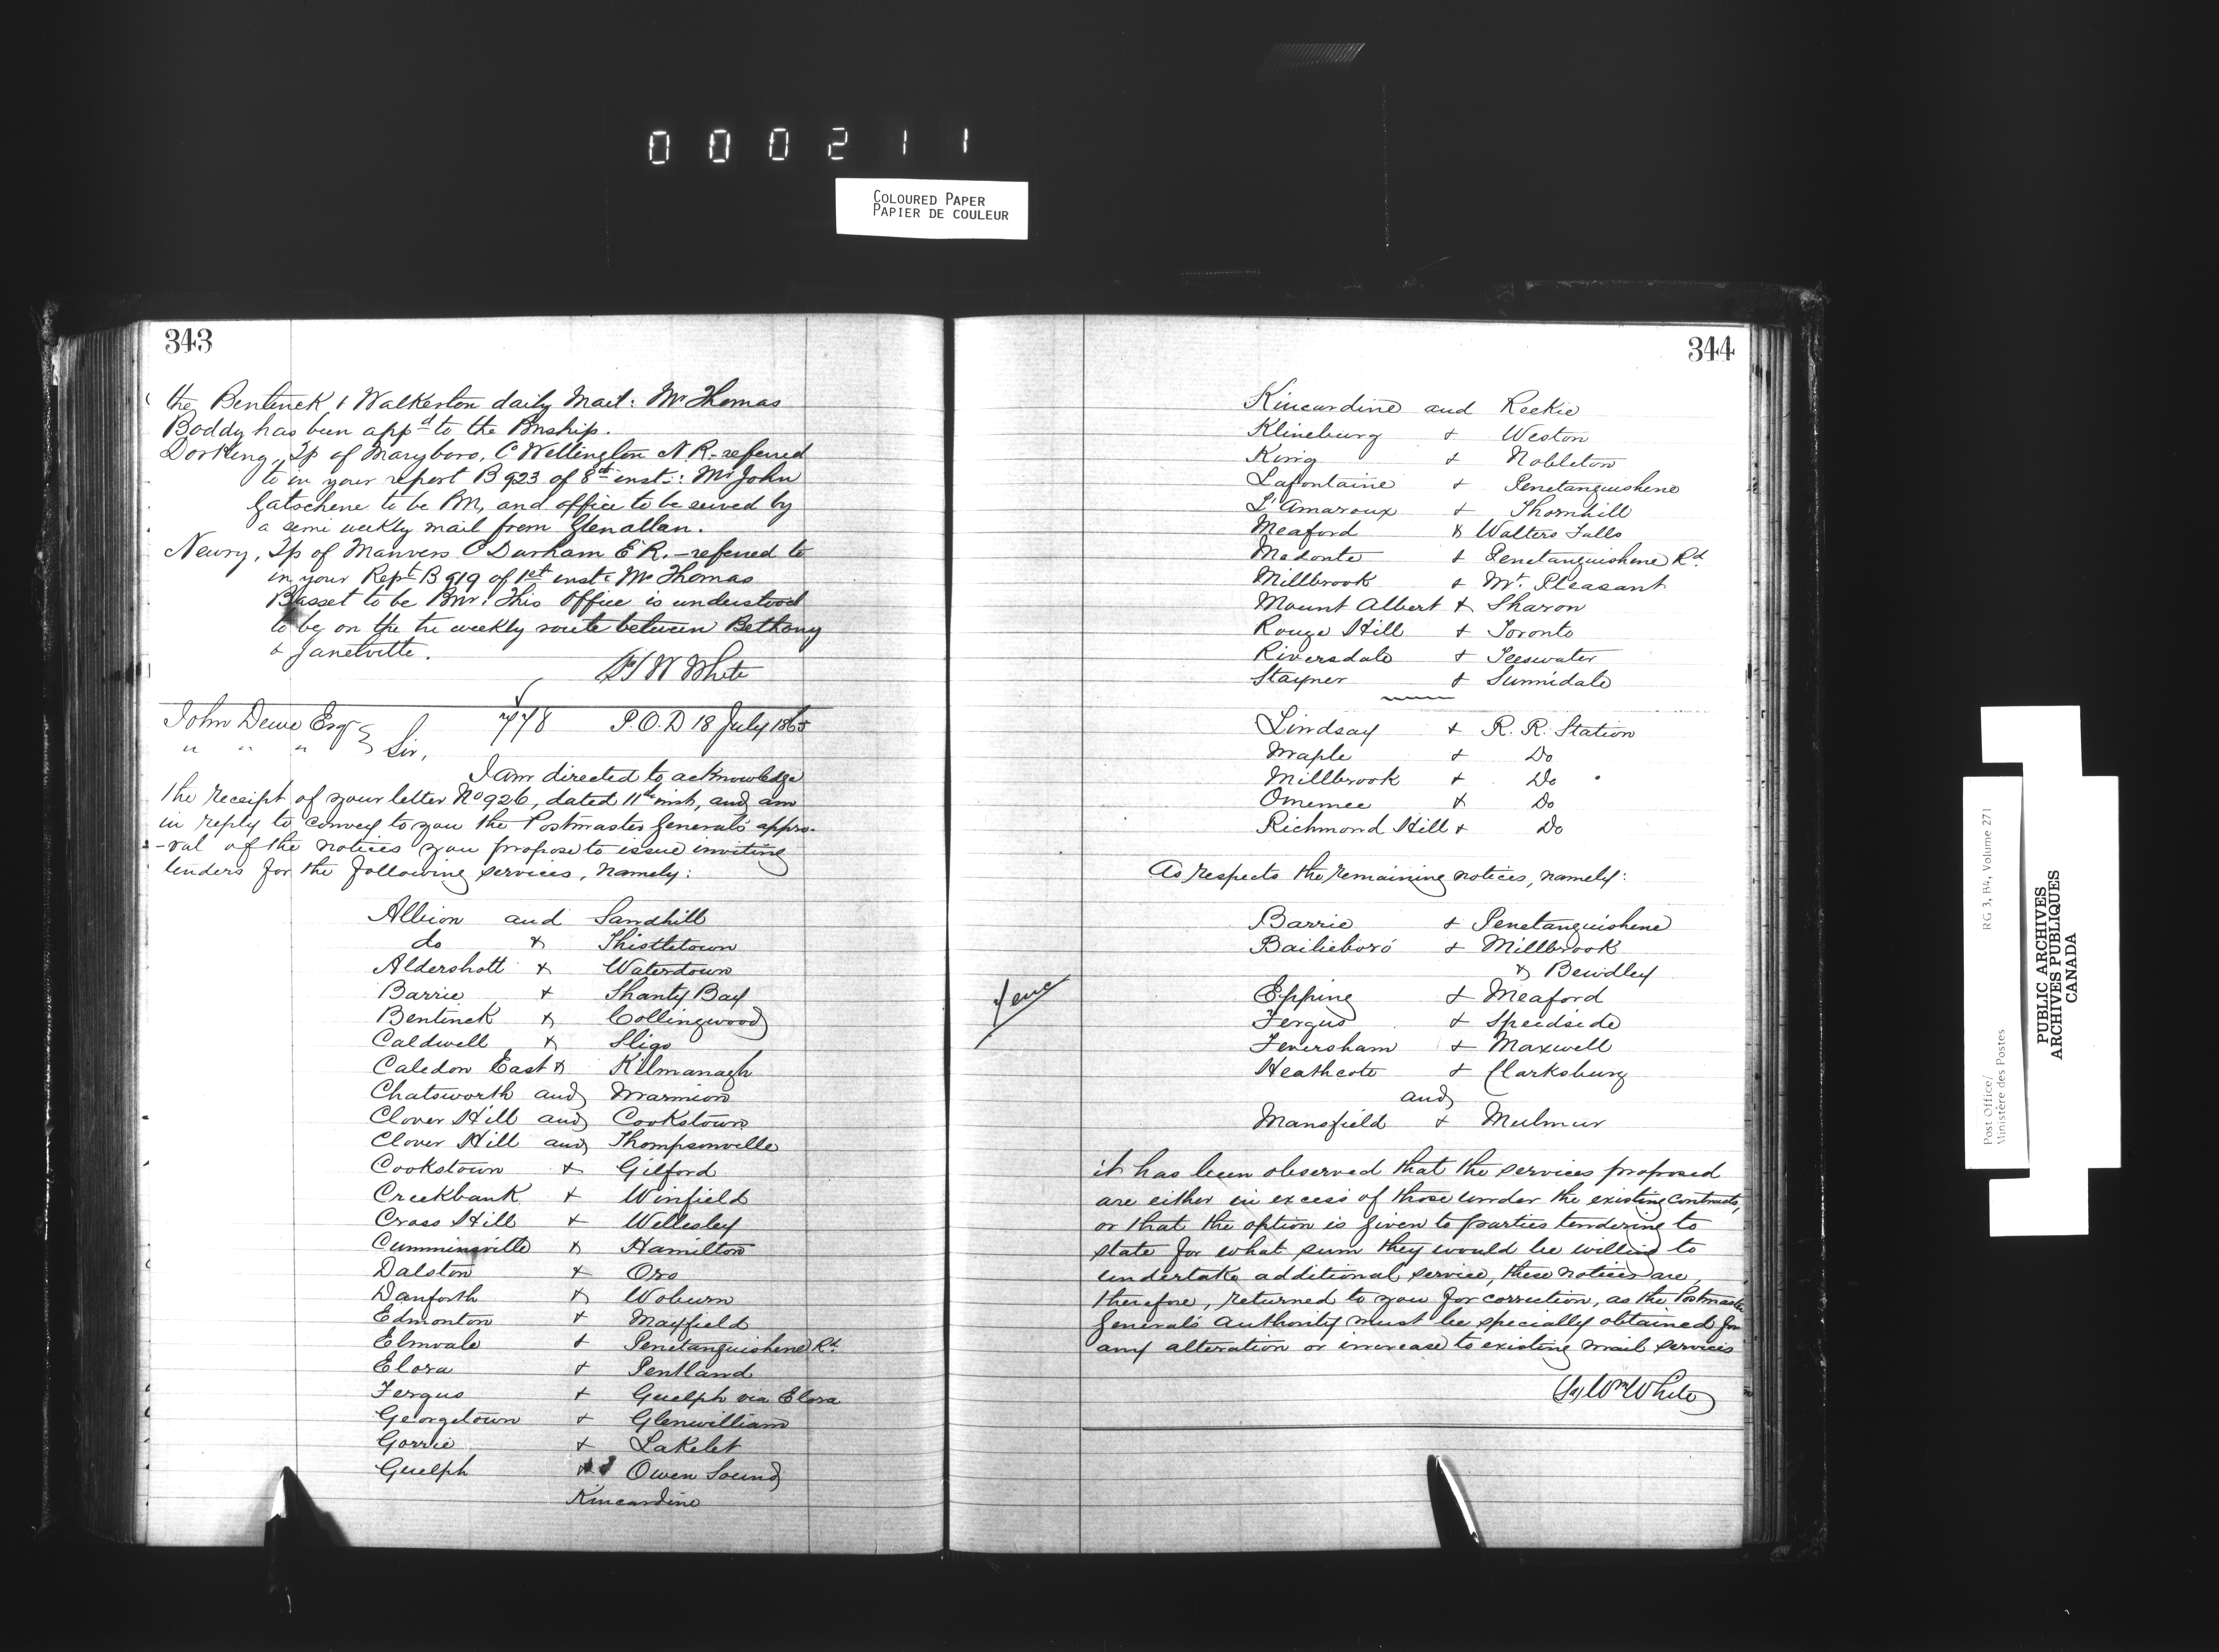 000211
COLOURED PAPER
PAPIER DE COULEUR
343
the Bentinck & Walkerton daily Mail: Mr Thomas
Boddy has been appd to the Pmship.
Dorking, Tp of Maryboro, C Wellington N.R. - referred
to in your report B 923 of 8th inst: Mr John
Gatschene to be Pm, and office to be served by
a semi weekly mail from Glenallan.
Newry, Tp of Manvers C Durham E.R. - referred to
in your Rept B 919 of 1st inst: Mr Thomas
Basset to be Pmr. This Office is understood
to be on the tri weekly route between Bethany
& Janetville.
W White
John Dewe Esqr 778 P.O.D 18 July 1865
" " " Sir,
I am directed to acknowledge
the receipt of your letter No 926, dated 11th inst, and am
in reply to convey to you the Postmaster General's appro-
-val of the notices you propose to issue inviting
tenders for the following services, namely:
Albion and Sandhill
do & Thistletown
Aldershott & Waterdown
Barrie & Shanty Bay
Bentinck & Collingwood
Caldwell & Sligo
Caledon East & Kilmanagh
Chatsworth and Marmion
Clover Hill and Cookstown
Clover Hill and Thompsonville
Cookstown & Gilford
Creekbank & Winfield
Cross Hill & Wellesley
Cumminsville & Hamilton
Dalston & Oro
Danforth & Woburn
Edmonton & Mayfield
Elmvale & Penetanguishene Rd
Elora & Pentland
Fergus & Guelph via Elora
Georgetown & Glenwilliam
Gorrie & Lakelet
Guelph & Owen Sound
Kincardine
344
Kincardine and Reekie
Klineburg & Weston
King & Nobleton
Lafontaine & Penetanguishene
L'Amaroux & Thornhill
Meaford & Walters Falls
Medonte & Penetanguishene Rd.
Millbrook & Mt. Pleasant
Mount Albert & Sharon
Rouge Hill & Toronto
Riversdale & Teeswater
Stayner & Sunnidale
Lindsay & R. R. Station
Maple & Do
Millbrook & Do
Omemee & Do
Richmond Hill & Do
As respects the remaining notices, namely:
Barrie & Penetanguishene
Bailieboro' & Millbrook
& Bewdley
Epping & Meaford
Fergus & Speedside
Feversham & Maxwell
Heathcote & Clarksburg
and
Mansfield & Mulmur
it has been observed that the services proposed
are either in excess of those under the existing contracts,
or that the option is given to parties tendering to
state for what sum they would be willing to
undertake additional service, these notices are,
therefore, returned to you for correction, as the Postmaster
General's Authority must be specially obtained for
any alteration or increase to existing mail services
(Sg) Wm White
Post Office/
Ministère des Postes
RG 3, B4, Volume 271
PUBLIC ARCHIVES
ARCHIVES PUBLIQUES
CANADA